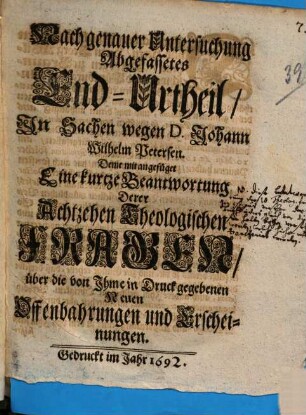 Nach genauer Untersuchung
Abgefassetes
End-Urtheil/
In Sachen wegen D. Johann
Wilhelm Petersen.
Deme mit angefüget
Eine kurtze Beantwortung
Derer
Achtzehen Theologischen
FRAGEN/
über die von Ihme in Druck gegebenen
Neuen
Offenbahrungen und Erschei-
nungen.
Gedruckt im Jahr 1692.